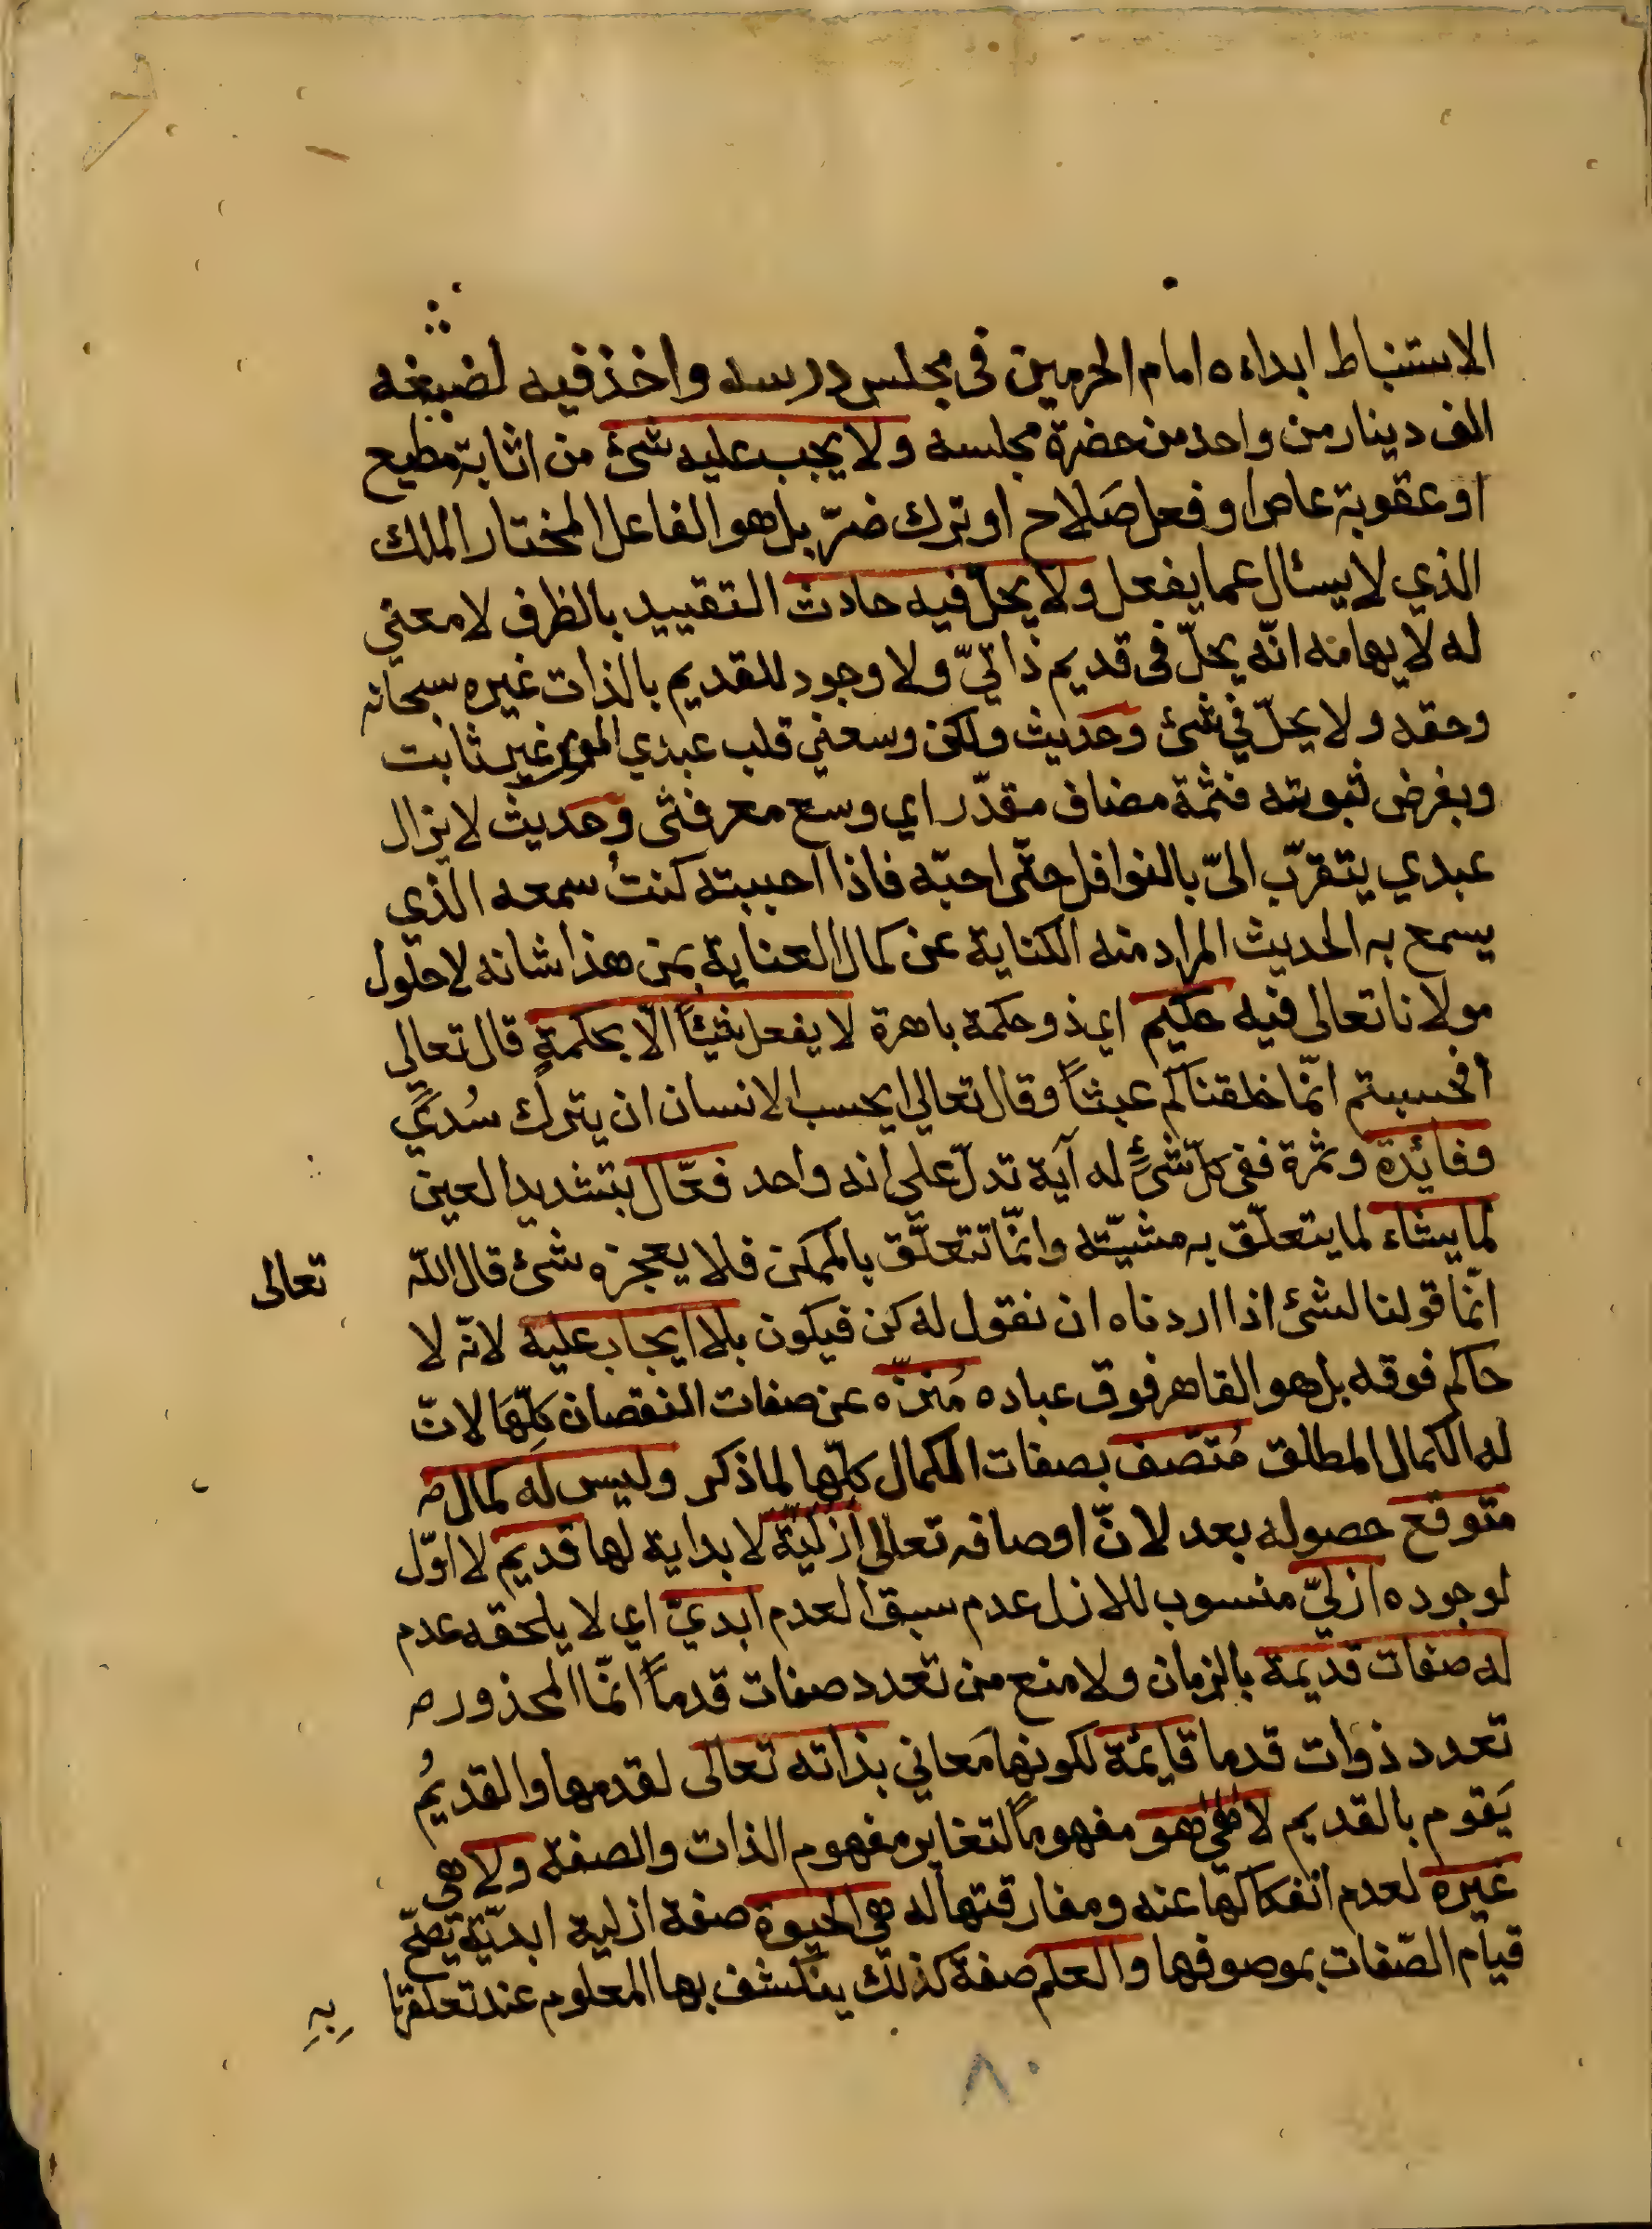 الاستنباط ابداه امام الحرمين فى مجلس درسه واخذ فيه لضيفه
الف دينار من واحد من حضرة مجلسه ولا يجب عليه شئ من اثابة مطيع
او عقوبة عاص او فعل صَلاح او ترك ضرّ بل هو الفاعل المختار الملك
الذي لا يسئال عما يفعل ولا يحلّ فيه حادث التقييد بالظرف لا معني
له لايهامه انّه يحلّ فى قديم ذاتيّ ولا وجود للقديم بالذات غيره سبحانه
وحقه ولا يحلّ في شئ وحديث ولكن وسعني قلب عبدي المومن غير ثابت
وبفرض ثبوته فثمّة مضاف مقدّر اي وسع معرفتى وحديث لا يزال
عبدي يتقرّب الىّ بالنوافل حتّى احبّه فاذا احببته كنتُ سمعه الذي
يسمع به الحديث المراد منه الكناية عن كمال العناية بمن هذا شانه لا حلول
مولانا تعالى فيه حكيم اي ذو حكمة باهرة لا يفعل شيئاً الّا بحكمةٍ قال تعالي
افحسبتم انّما خلقناكم عبثاً وقال تعالي ايحسب الانسان ان يترك سُديً
وفائدة وثمرة ففى كلّ شئٍ له آية تدلّ علي انه واحد فعّال بتشديد العين
لما يشاء لما يتعلّق به مشيّته وانّما تتعلّق بالممكن فلا يعجزه شئ قال الله تعالى
انّما قولنا لشئ اذا اردناه ان نقول له كن فيكون بلا ايجاب عليه لانّه لا
حاكم فوقه بل هو القاهر فوق عباده مُنزّه عن صفات النقصان كلّها لانّ
له الكمال المطلق مُتّصف بصفات الكمال كلّها لما ذكر وليس له كمال
متوقع حصوله بعد لانّ اوصافه تعالى ازليّة لا بداية لها قديم لا اوّل
لوجوده ازليّ منسوب للازل عدم سبق العدم ابديّ اي لا يلحقه عدم
له صفات قديمة بالزمان ولا منع من تعدد صفات قدماً انّما المحذور
تعدد ذوات قدما قايمة لكونها مَعاني بذاته تعالى لقدمها والقديمُ
يَقوم بالقديم لا هي هو مفهوماً لتغاير مفهوم الذات والصفة ولا هي
غيره لعدم انفكاكها عنه ومفارقتها له هي الحيوة صفة ازلية ابديّة تصحّح
قيام الصّفات بموصوفها والعلم صفة كذلك ينكشف بها المعلوم عند تعلقها
بِهِ
٨٠